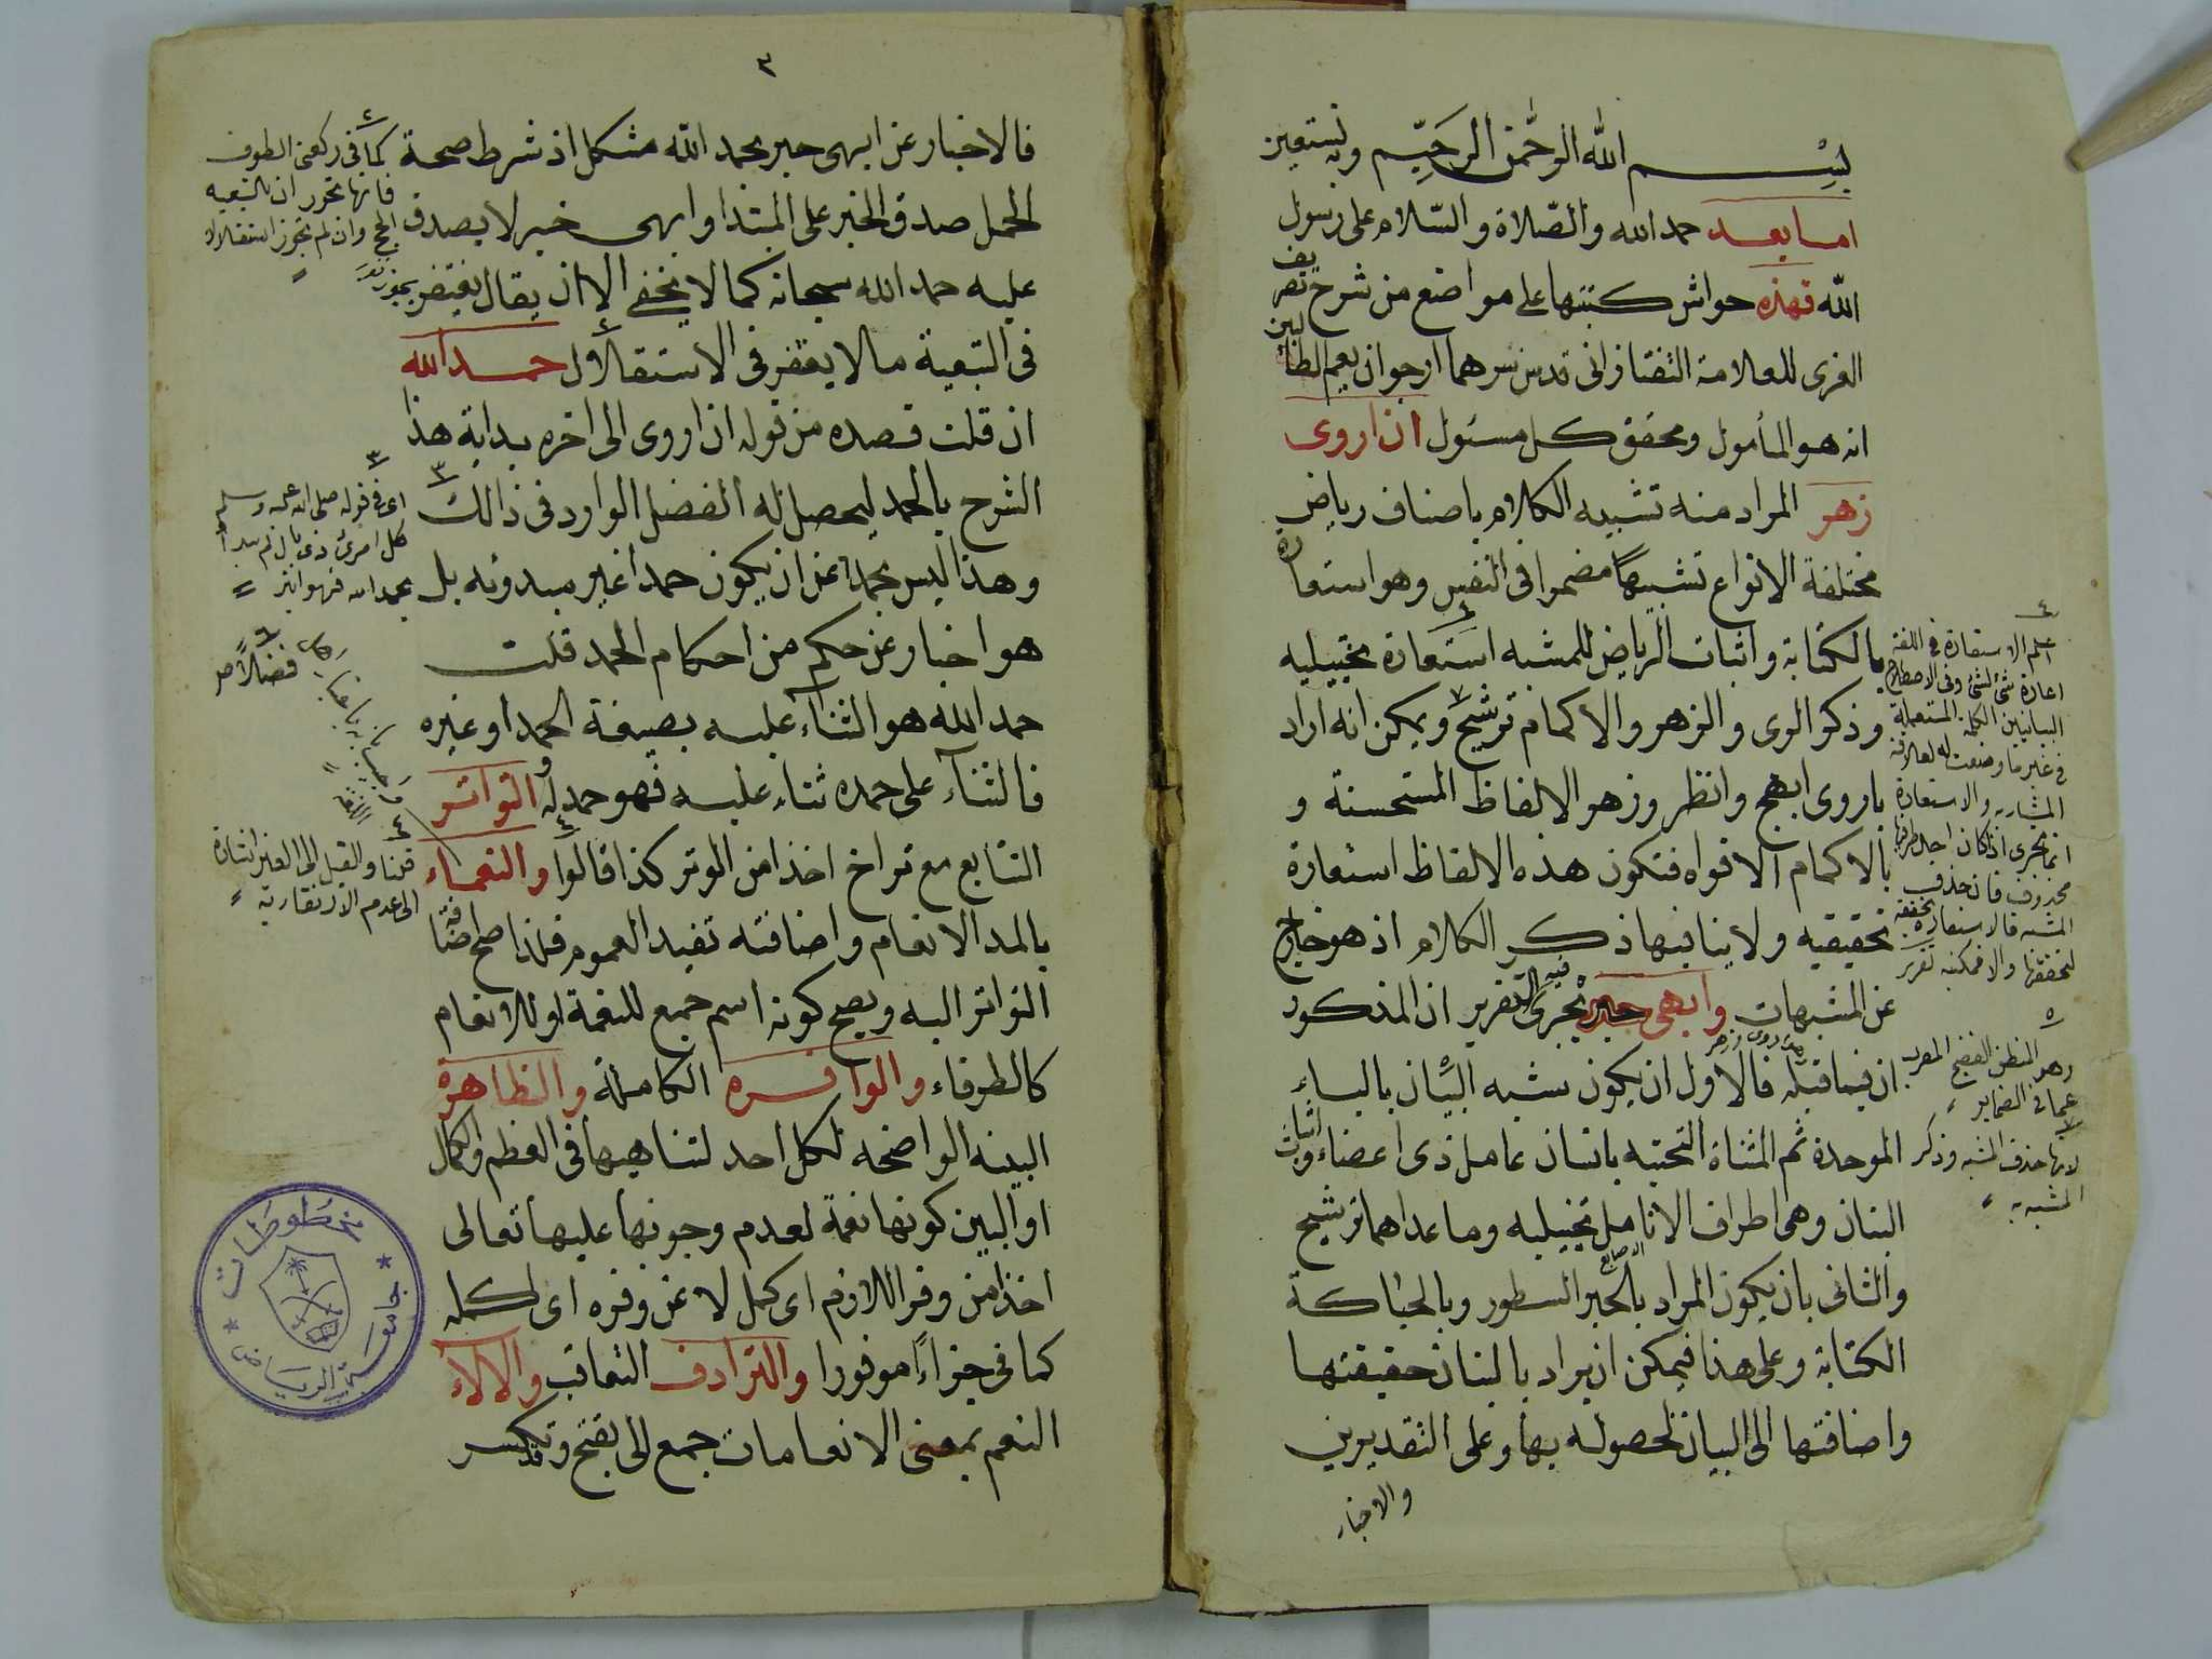 بسم الله الرحمن الرحيم وبه نستعين
اما بعد حمد الله والصّلاة والسّلام على رسول
الله فهذه حواش كتبتها على مواضع من شرح تصريف
الغرى للعلامة التفتازانى قدس سرهما ارجو ان يعم الطالبين
انه هو المأمول ومحقق كل مسئول ان اروى
زهر المراد منه تشبيه الكلام باصناف رياض
مختلفة الانواع تشبيها مضمرا فى النفس وهو استعارة
بالكتابة واثبات الرياض للمشبه استعارة تخييليه
وذكر الروى والزهر والاكمام ترشيح ويمكن انه اراد
باروى ابهج وانظر وزهر الالفاظ المستحسنة و
بالاكمام الافواه فتكون هذه الالفاظ استعارة
تحقيقيه ولا ينافيها ذكر الكلام اذ هو خارج
عن المشبهات وابهى حبر يجرى فيه التقرير ان المذكور
ان فيما قبله فالاول ان يكون شبه البيان بالباء
الموحدة ثم المثناة التحتيه بانسان عامل ذى اعضاء واثبات
البنان وهى اطراف الانامل تخييليه وما عداهما ترشيح
والثانى بان يكون المراد بالحبر السطور وبالحياكة
الكتابة وعلى هذا فيمكن ان يراد بالبنان حقيقتها
واضافتها الى البيان لحصوله بها وعلى التقديرين
والاخبار
اعلم الاستعارة فى اللغة
اعارة شئ لشئ وفى الاصطلاح
البيانيين الكلمة المستعملة
فى غير ما وضعت له لعلاقة
المشابهه والاستعارة
انما تجرى اذا كان احد طرفيها
محذوف فان حذف
المشبه فالاستعارة تحقيقة
لتحققها والا فمكنيه تقرير
وهو المنطق الفصيح المعرب
عما فى الضماير
لانها حذف المشبه وذكر
المشبه به
٣
فالاخبار عن ابهى حبر بحمد الله مشكل اذ شرط صحة
الحمل صدق الخبر على المبتدا وابهى حبر لا يصدق
عليه حمد الله سبحانه كما لا يخفى الا ان يقال يغتفر
فى التبعية ما لا يغتفر فى الاستقلال حمد الله
ان قلت قصده من قوله ان اروى الى اخره بداية هذا
الشرح بالحمد ليحصل له الفضل الوارد فى ذالك
وهذا ليس بحمد عن ان يكون حمدا غير مبدوئه بل
هو اخبار عن حكم من احكام الحمد قلت
حمد الله هو الثناء عليه بصيغة الحمد او غيره
فالثناء على حمده ثناء عليه فهو حمد له والتواتر
التتابع مع تراخ اخذا من الوتر كذا قالوا والنعماء
بالمد الانعام واضافته تفيد العموم فلذا صح اضافة
التواتر اليه ويصح كونه اسم جمع للنعمة او للانعام
كالطرفاء والوافره الكاملة والظاهرة
البينه الواضحه لكل احد لتناهيها فى العظم والكمال
او البين كونها نعمة لعدم وجوبها عليها تعالى
اخذا من وفر اللازم اى كمل لا عن وفره اى اكمله
كما فى جزاءً موفورا والترادف التعاقب والالاء
النعم بمعنى الانعامات جمع الى بفتح وقد تكسر
كما فى ركعتى الطوف
فانها تجوز ان بالتبعيه
الحج وان لم تجوز استقلالا
اى فى قوله صلى الله عليه وسلم
كل امرئ ذى بال لم يبدأ
بحمد الله فهو ابتر
فضلاً من
قلنا والقيل الى الغير اشارة
الى عدم الارتقاريه
مخطوطات
جامعة الرياض